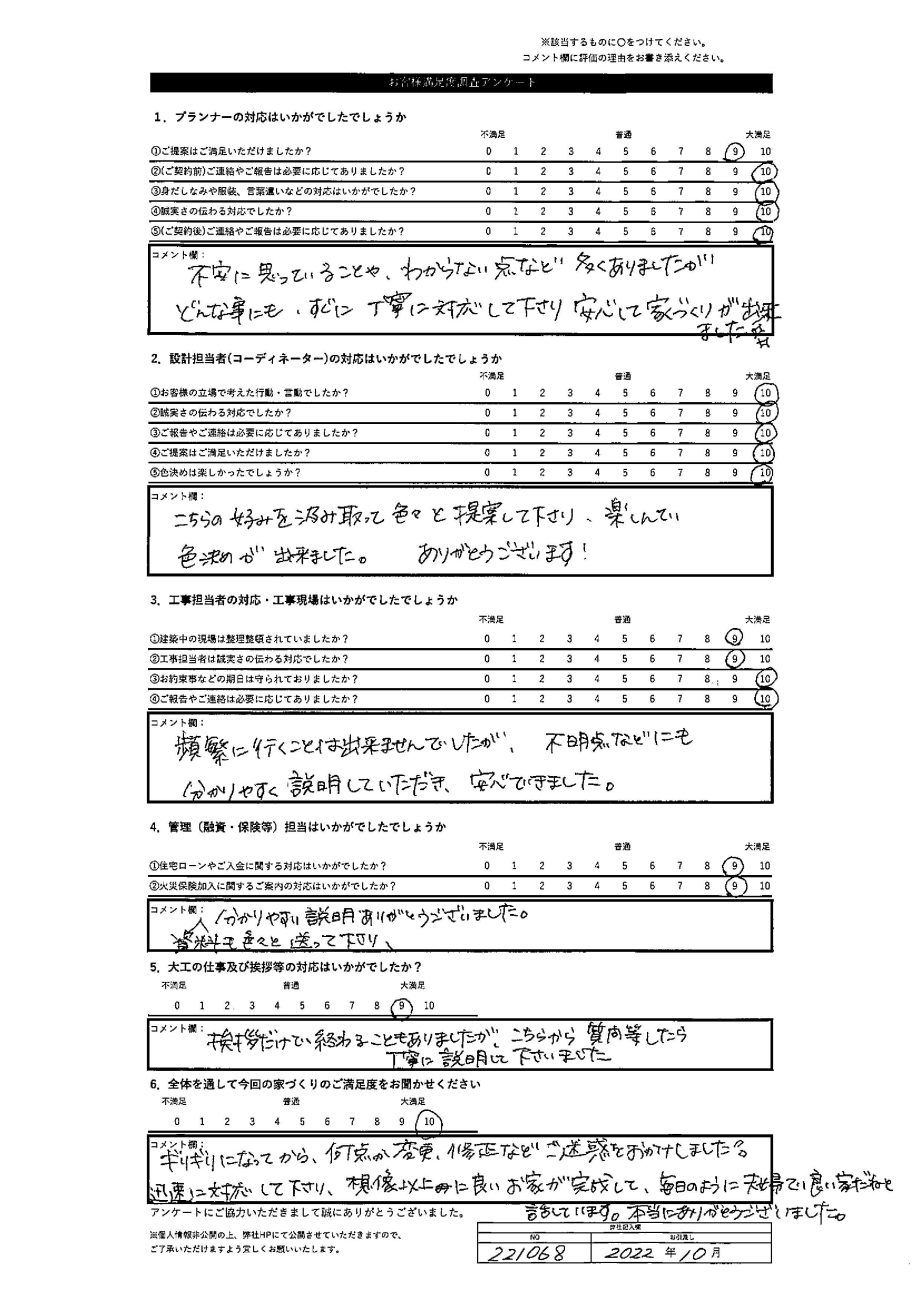 ※該当するものに〇をつけてください。
コメント欄に評価の理由をお書き添えください。
お客様満足度調査アンケート
1．プランナーの対応はいかがでしたでしょうか
不満足 普通 大満足
①ご提案はご満足いただけましたか？ 0 1 2 3 4 5 6 7 8 9 10
②(ご契約前)ご連絡やご報告は必要に応じてありましたか？ 0 1 2 3 4 5 6 7 8 9 10
③身だしなみや服装、言葉遣いなどの対応はいかがでしたか？ 0 1 2 3 4 5 6 7 8 9 10
④誠実さの伝わる対応でしたか？ 0 1 2 3 4 5 6 7 8 9 10
⑤(ご契約後)ご連絡やご報告は必要に応じてありましたか？ 0 1 2 3 4 5 6 7 8 9 10
コメント欄：
不安に思っていることや、わからない点など 多くありましたが
どんな事にも、すぐに 丁寧に対応して下さり 安心して家づくりが出来
ました
2．設計担当者(コーディネーター)の対応はいかがでしたでしょうか
不満足 普通 大満足
①お客様の立場で考えた行動・言動でしたか？ 0 1 2 3 4 5 6 7 8 9 10
②誠実さの伝わる対応でしたか？ 0 1 2 3 4 5 6 7 8 9 10
③ご報告やご連絡は必要に応じてありましたか？ 0 1 2 3 4 5 6 7 8 9 10
④ご提案はご満足いただけましたか？ 0 1 2 3 4 5 6 7 8 9 10
⑤色決めは楽しかったでしょうか？ 0 1 2 3 4 5 6 7 8 9 10
コメント欄：
こちらの好みを汲み取って色々と提案して下さり、楽しんで
色決めが出来ました。 ありがとうございます！
3．工事担当者の対応・工事現場はいかがでしたでしょうか
不満足 普通 大満足
①建築中の現場は整理整頓されていましたか？ 0 1 2 3 4 5 6 7 8 9 10
②工事担当者は誠実さの伝わる対応でしたか？ 0 1 2 3 4 5 6 7 8 9 10
③お約束事などの期日は守られておりましたか？ 0 1 2 3 4 5 6 7 8 9 10
④ご報告やご連絡は必要に応じてありましたか？ 0 1 2 3 4 5 6 7 8 9 10
コメント欄：
頻繁に行くことは出来ませんでしたが、 不明点などにも
分かりやすく説明していただき、安心できました。
4．管理（融資・保険等）担当はいかがでしたでしょうか
不満足 普通 大満足
①住宅ローンやご入金に関する対応はいかがでしたか？ 0 1 2 3 4 5 6 7 8 9 10
②火災保険加入に関するご案内の対応はいかがでしたか？ 0 1 2 3 4 5 6 7 8 9 10
コメント欄：
分かりやすい説明ありがとうございました。
資料も色々と送って下さり、
5．大工の仕事及び挨拶等の対応はいかがでしたか？
不満足 普通 大満足
0 1 2 3 4 5 6 7 8 9 10
コメント欄：
挨拶だけで終わることもありましたが、こちらから質問等したら
丁寧に説明して下さいました
6．全体を通して今回の家づくりのご満足度をお聞かせください
不満足 普通 大満足
0 1 2 3 4 5 6 7 8 9 10
コメント欄：
ギリギリになってから、何点か変更、修正などご迷惑をおかけしました？
迅速に対応して下さり、想像以上に良いお家が完成して、毎日のように夫婦で良い家だねと
話しています。本当にありがとうございました。
アンケートにご協力いただきまして誠にありがとうございました。
※個人情報非公開の上、弊社HPにて公開させていただきますので、
ご了承いただけますよう宜しくお願いいたします。
弊社記入欄
NO お引渡し
221068 2022年10月